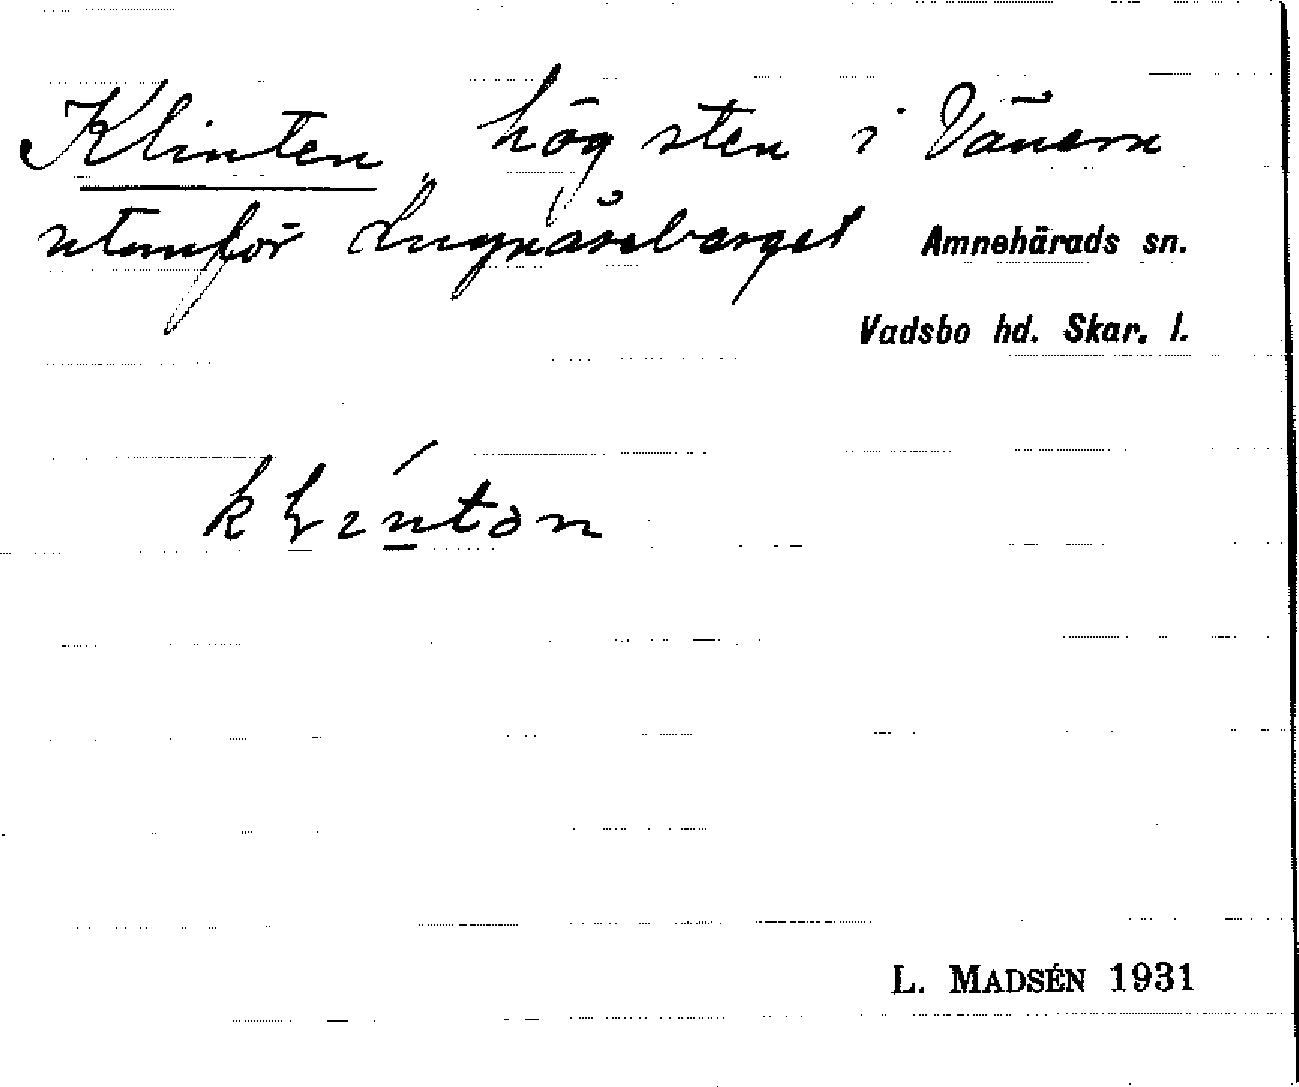 Klinten, hög sten i Vänern
utanför Lugnåsberget Amnehärads sn.
Vadsbo hd. Skar. l.
L. MADSÉN 1931